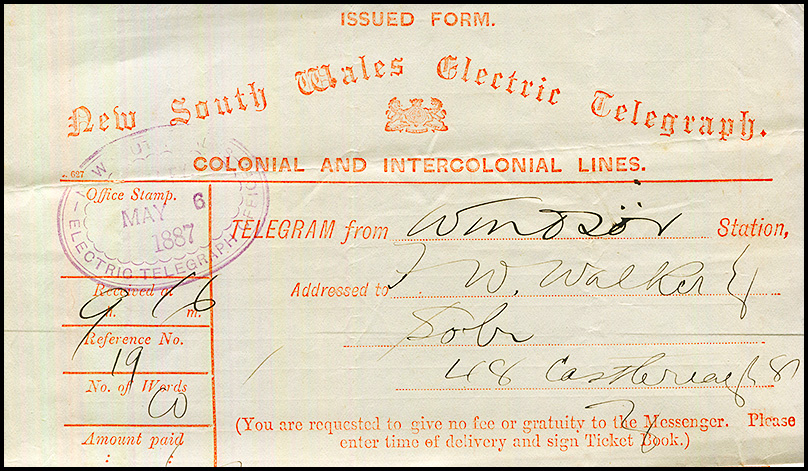 ISSUED FORM.
New South Wales Electric Telegraph.
COLONIAL AND INTERCOLONIAL LINES.
Office Stamp.
MAY 6
1887
ELECTRIC TELEGRAPH
TELEGRAM from Windsor Station,
Received at
h. m.
Addressed to W. Walker
Reference No.
19
48 Castlereagh
No. of Words
(You are requested to give no fee or gratuity to the Messenger. Please
enter time of delivery and sign Ticket Book.)
Amount paid
: :